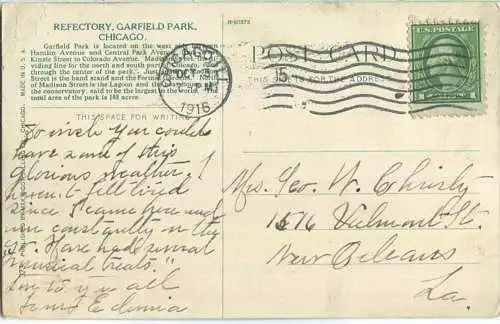 REFECTORY, GARFIELD PARK,
CHICAGO.
Garfield Park is located on the west side between
Hamlin Avenue and Central Park Avenue
Kinzie Street to Colorado Avenue. Madison Street, the di-
viding line for the north and south parts of Chicago, runs
through the center of the park. Just
Madison Street is the Lagoon and the
the conservatory, said to be the largest in the World. The
total area of the park is 188 acres.
R-50372
MADE IN U. S. A.
CHICAGO
OCT
1916
POST CARD
THIS SIDE IS FOR THE ADDRESS
U.S. POSTAGE
THIS SPACE FOR WRITING
So wish you could
have some of this
glorious weather. I
haven't felt tired
since I came here and
am constantly on the
go. Have had several
musical treats.
Love to you all
Edonia
Mrs. Geo. W. Christy
1576 Calmont St.
New Orleans
La.